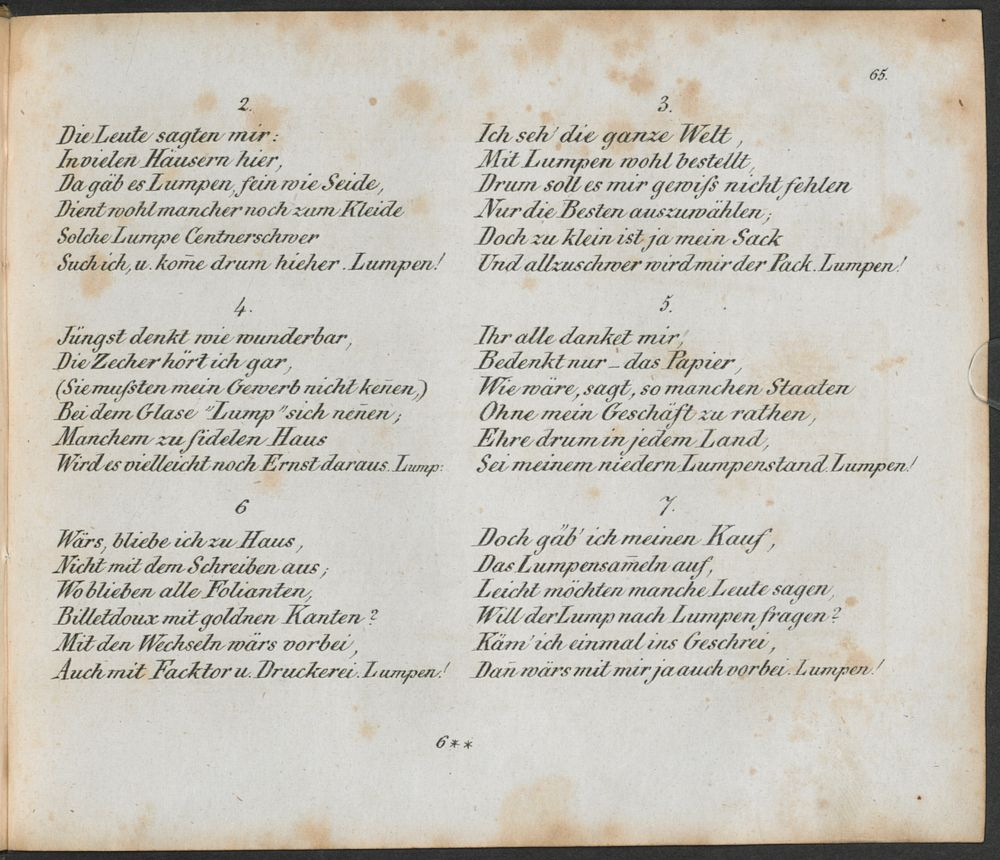 65.
2.
Die Leute sagten mir:
In vielen Häusern hier,
Da gäb es Lumpen, fein wie Seide,
Dient wohl mancher noch zum Kleide
Solche Lumpe Centnerschwer
Such ich, u. kom̅e drum hieher. Lumpen!
3.
Ich seh' die ganze Welt,
Mit Lumpen wohl bestellt,
Drum soll es mir gewiſs nicht fehlen
Nur die Besten auszuwählen;
Doch zu klein ist ja mein Sack
Und allzuschwer wird mir der Pack. Lumpen!
4.
Jüngst denkt wie wunderbar,
Die Zecher hört ich gar,
(Sie muſsten mein Gewerb nicht ken̅en,)
Bei dem Glase "Lump" sich nen̅en;
Manchem zu fidelen Haus
Wird es vielleicht noch Ernst daraus. Lump:
5.
Ihr alle danket mir,
Bedenkt nur – das Papier,
Wie wäre, sagt, so manchen Staaten
Ohne mein Geschäft zu rathen,
Ehre drum in jedem Land,
Sei meinem niedern Lumpenstand. Lumpen!
6
Wärs, bliebe ich zu Haus,
Nicht mit dem Schreiben aus;
Wo blieben alle Folianten,
Billetdoux mit goldnen Kanten?
Mit den Wechseln wärs vorbei,
Auch mit Facktor u. Druckerei. Lumpen!
7.
Doch gäb' ich meinen Kauf,
Das Lumpensam̅eln auf,
Leicht möchten manche Leute sagen,
Will der Lump nach Lumpen fragen?
Käm' ich einmal ins Geschrei,
Dan̅ wärs mit mir ja auch vorbei. Lumpen!
6**